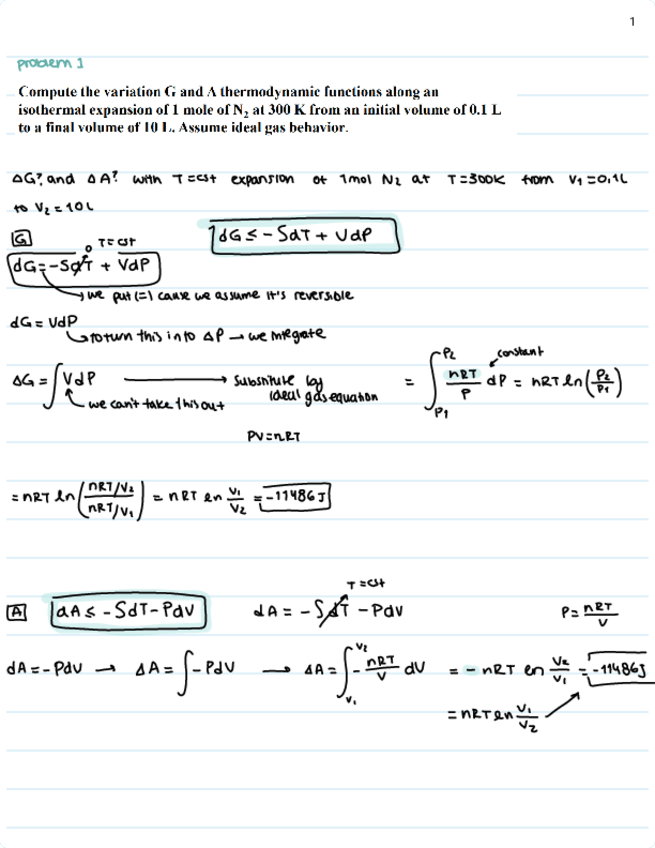 1
problem 1
Compute the variation G and A thermodynamic functions along an
isothermal expansion of 1 mole of N₂ at 300 K from an initial volume of 0.1 L
to a final volume of 10 L. Assume ideal gas behavior.
ΔG? and ΔA? with T=cst expansion of 1mol N₂ at T=300K from V₁=0,1L
to V₂=10L
G
0 T=cst
dG=-SdT + VdP
dG≤-SdT + VdP
we put (=) cause we assume it's reversible
dG=VdP
to turn this into ΔP → we integrate
ΔG=∫VdP → substitute by ideal gas equation = ∫P₁P₂ nRT/P dP = nRT ln(P₂/P₁)
constant
we can't take this out
PV=nRT
=nRT ln((nRT/V₂)/(nRT/V₁)) = nRT ln V₁/V₂ = -11486J
T=cst
A dA≤-SdT-PdV dA=-SdT-PdV P=nRT/V
dA=-PdV → ΔA=∫-PdV → ΔA=∫V₁V₂ -nRT/V dV = -nRT ln V₂/V₁ = -11486J
=nRT ln V₁/V₂